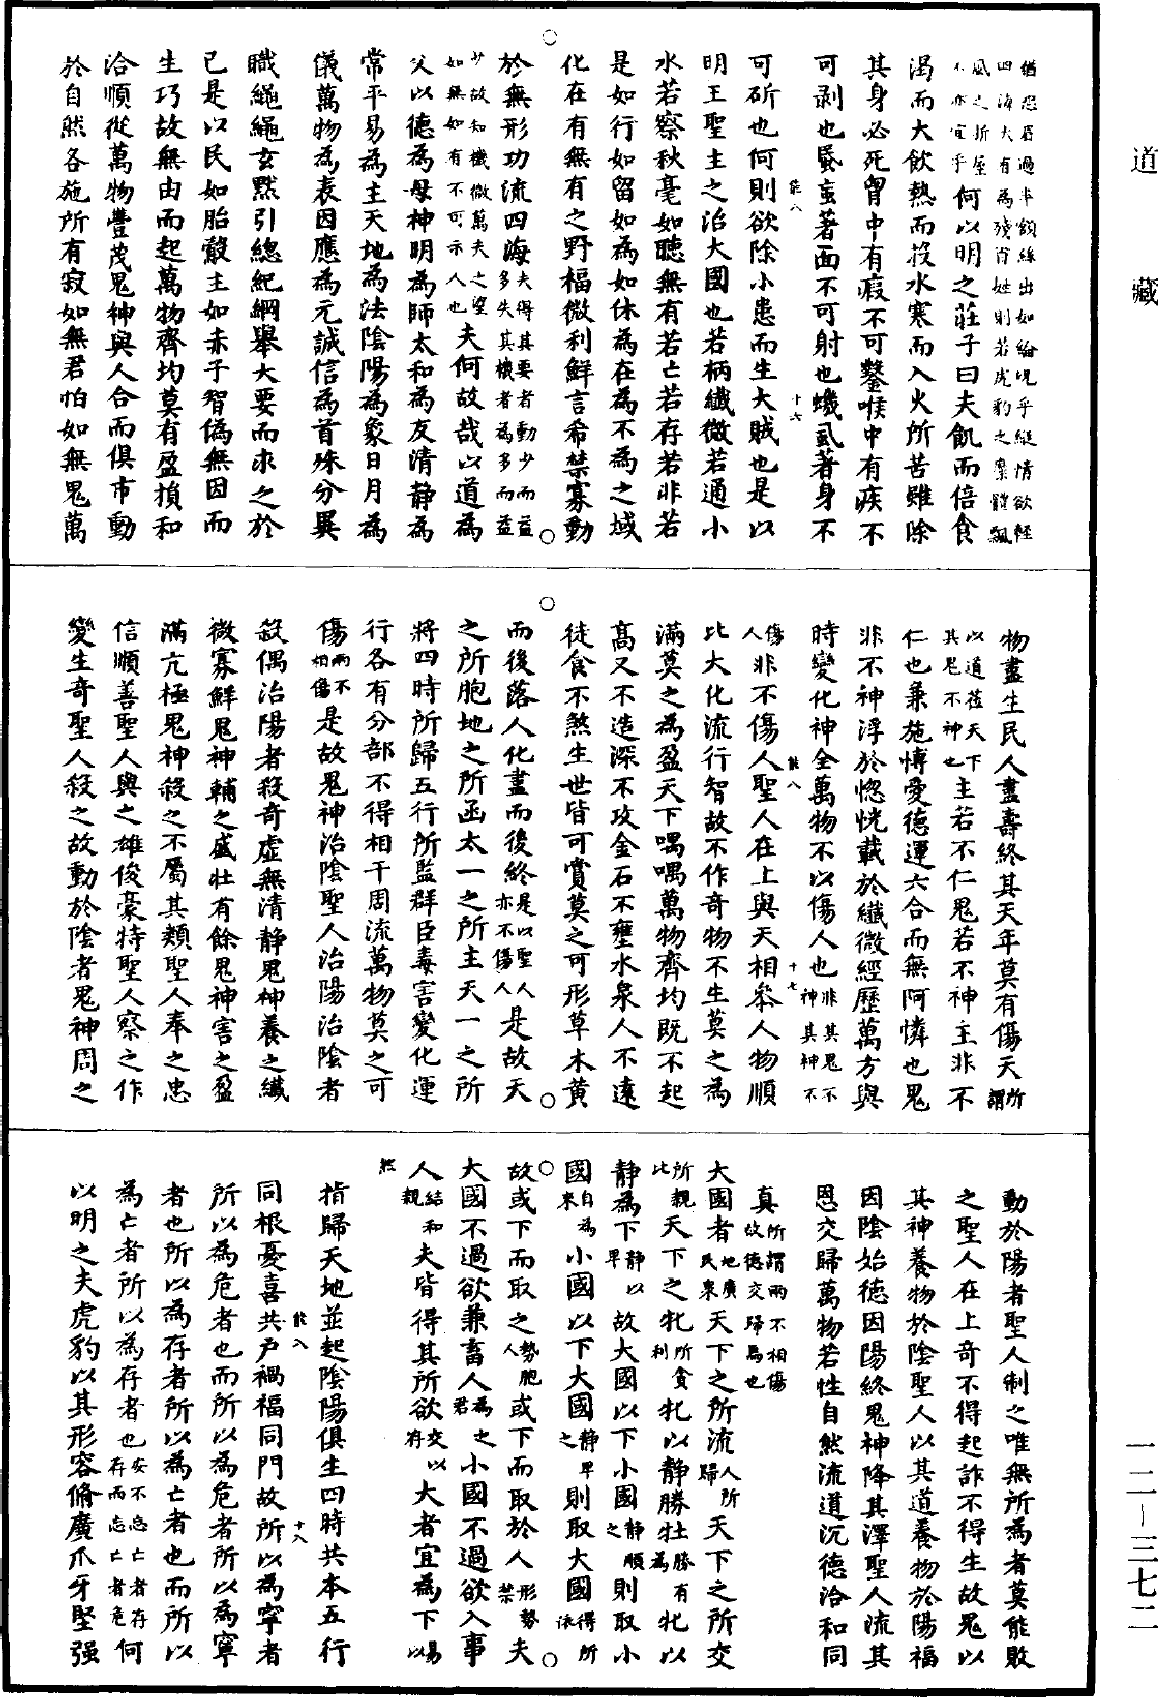 道藏
猶忍若過半額絲出如綸況乎縱情欲輕
四海大有為殘百姓則若虎豹之麋體飄
風之折屋
不亦宜乎何以明之莊子曰夫飢而倍食
渴而大飲熱而投水寒而入火所苦雖除
其身必死胷中有瘕不可鑿喉中有疾不
可剥也蟁蝱著面不可射也蟣虱著身不
能八 十六
可斫也何則欲除小患而生大賊也是以
明王聖主之治大國也若柄纖微若通小
水若察秋毫如聽無有若亡若存若非若
是如行如留如為如休為在為不為之域
化在有無有之野福微利鮮言希禁寡動
於無形功流四海夫得其要者動少而益多失其機者為多而益
少故知機微萬夫之望
如無如有不可示人也夫何故哉以道為
父以德為母神明為師太和為友清静為
常平易為主天地為法陰陽為象日月為
儀萬物為表因應為元誠信為首殊分異
職繩繩玄默引總紀綱舉大要而求之於
己是以民如胎𪉷主如赤子智偽無因而
生巧故無由而起萬物齊均莫有盈損和
洽順從萬物豐茂鬼神與人合而俱市動
於自然各施所有寂如無君怕如無鬼萬
物盡生民人盡壽終其天年莫有傷夭所謂
以道莅天下
其鬼不神也主若不仁鬼若不神主非不
仁也兼施博愛德運六合而無阿憐也鬼
非不神浮於惚恍載於纖微經歷萬方與
時變化神全萬物不以傷人也非其鬼不神其神不
能八 十七
傷人非不傷人聖人在上與天相參人物順
比大化流行智故不作奇物不生莫之為
滿莫之為盈天下喁喁萬物齊均既不起
高又不造深不攻金石不壅水泉人不遠
徒食不煞生世皆可賞莫之可形草木黄
而後落人化盡而後終是以聖人亦不傷人是故天
之所胞地之所函太一之所主天一之所
將四時所歸五行所監群臣毒害變化運
行各有分部不得相干周流萬物莫之可
傷兩不相傷是故鬼神治陰聖人治陽治陰者
殺偶治陽者殺奇虛無清静鬼神養之纖
微寡鮮鬼神輔之盛壯有餘鬼神害之盈
滿亢極鬼神殺之不屬其類聖人奉之忠
信順善聖人與之雄俊豪特聖人察之作
變生奇聖人殺之故動於陰者鬼神周之
動於陽者聖人制之唯無所為者莫能敗
之聖人在上奇不得起詐不得生故鬼以
其神養物於陰聖人以其道養物於陽福
因陰始德因陽終鬼神降其澤聖人流其
恩交歸萬物若性自然流道沉德洽和同
真所謂兩不相傷故德交歸焉也
大國者地廣民衆天下之所流人所歸天下之所交
所親比天下之牝所貪利牝以静勝牡勝有為牝以
静為下静以卑故大國以下小國静順之則取小
國自為來小國以下大國静卑之則取大國得所依
故或下而取之勢胞人或下而取於人形勢禁夫
大國不過欲兼畜人為之君小國不過欲入事
人結和親夫皆得其所欲交以存大者宜為下以易
然
指歸天地並起陰陽俱生四時共本五行
同根憂喜共户禍福同門故所以為寧者
能八 十八
所以為危者也而所以為危者所以為寧
者也所以為存者所以為亡者也而所以
為亡者所以為存者也安不忘亡者存存而忘亡者危何
以明之夫虎豹以其形容脩廣爪牙堅强
一二－三七二